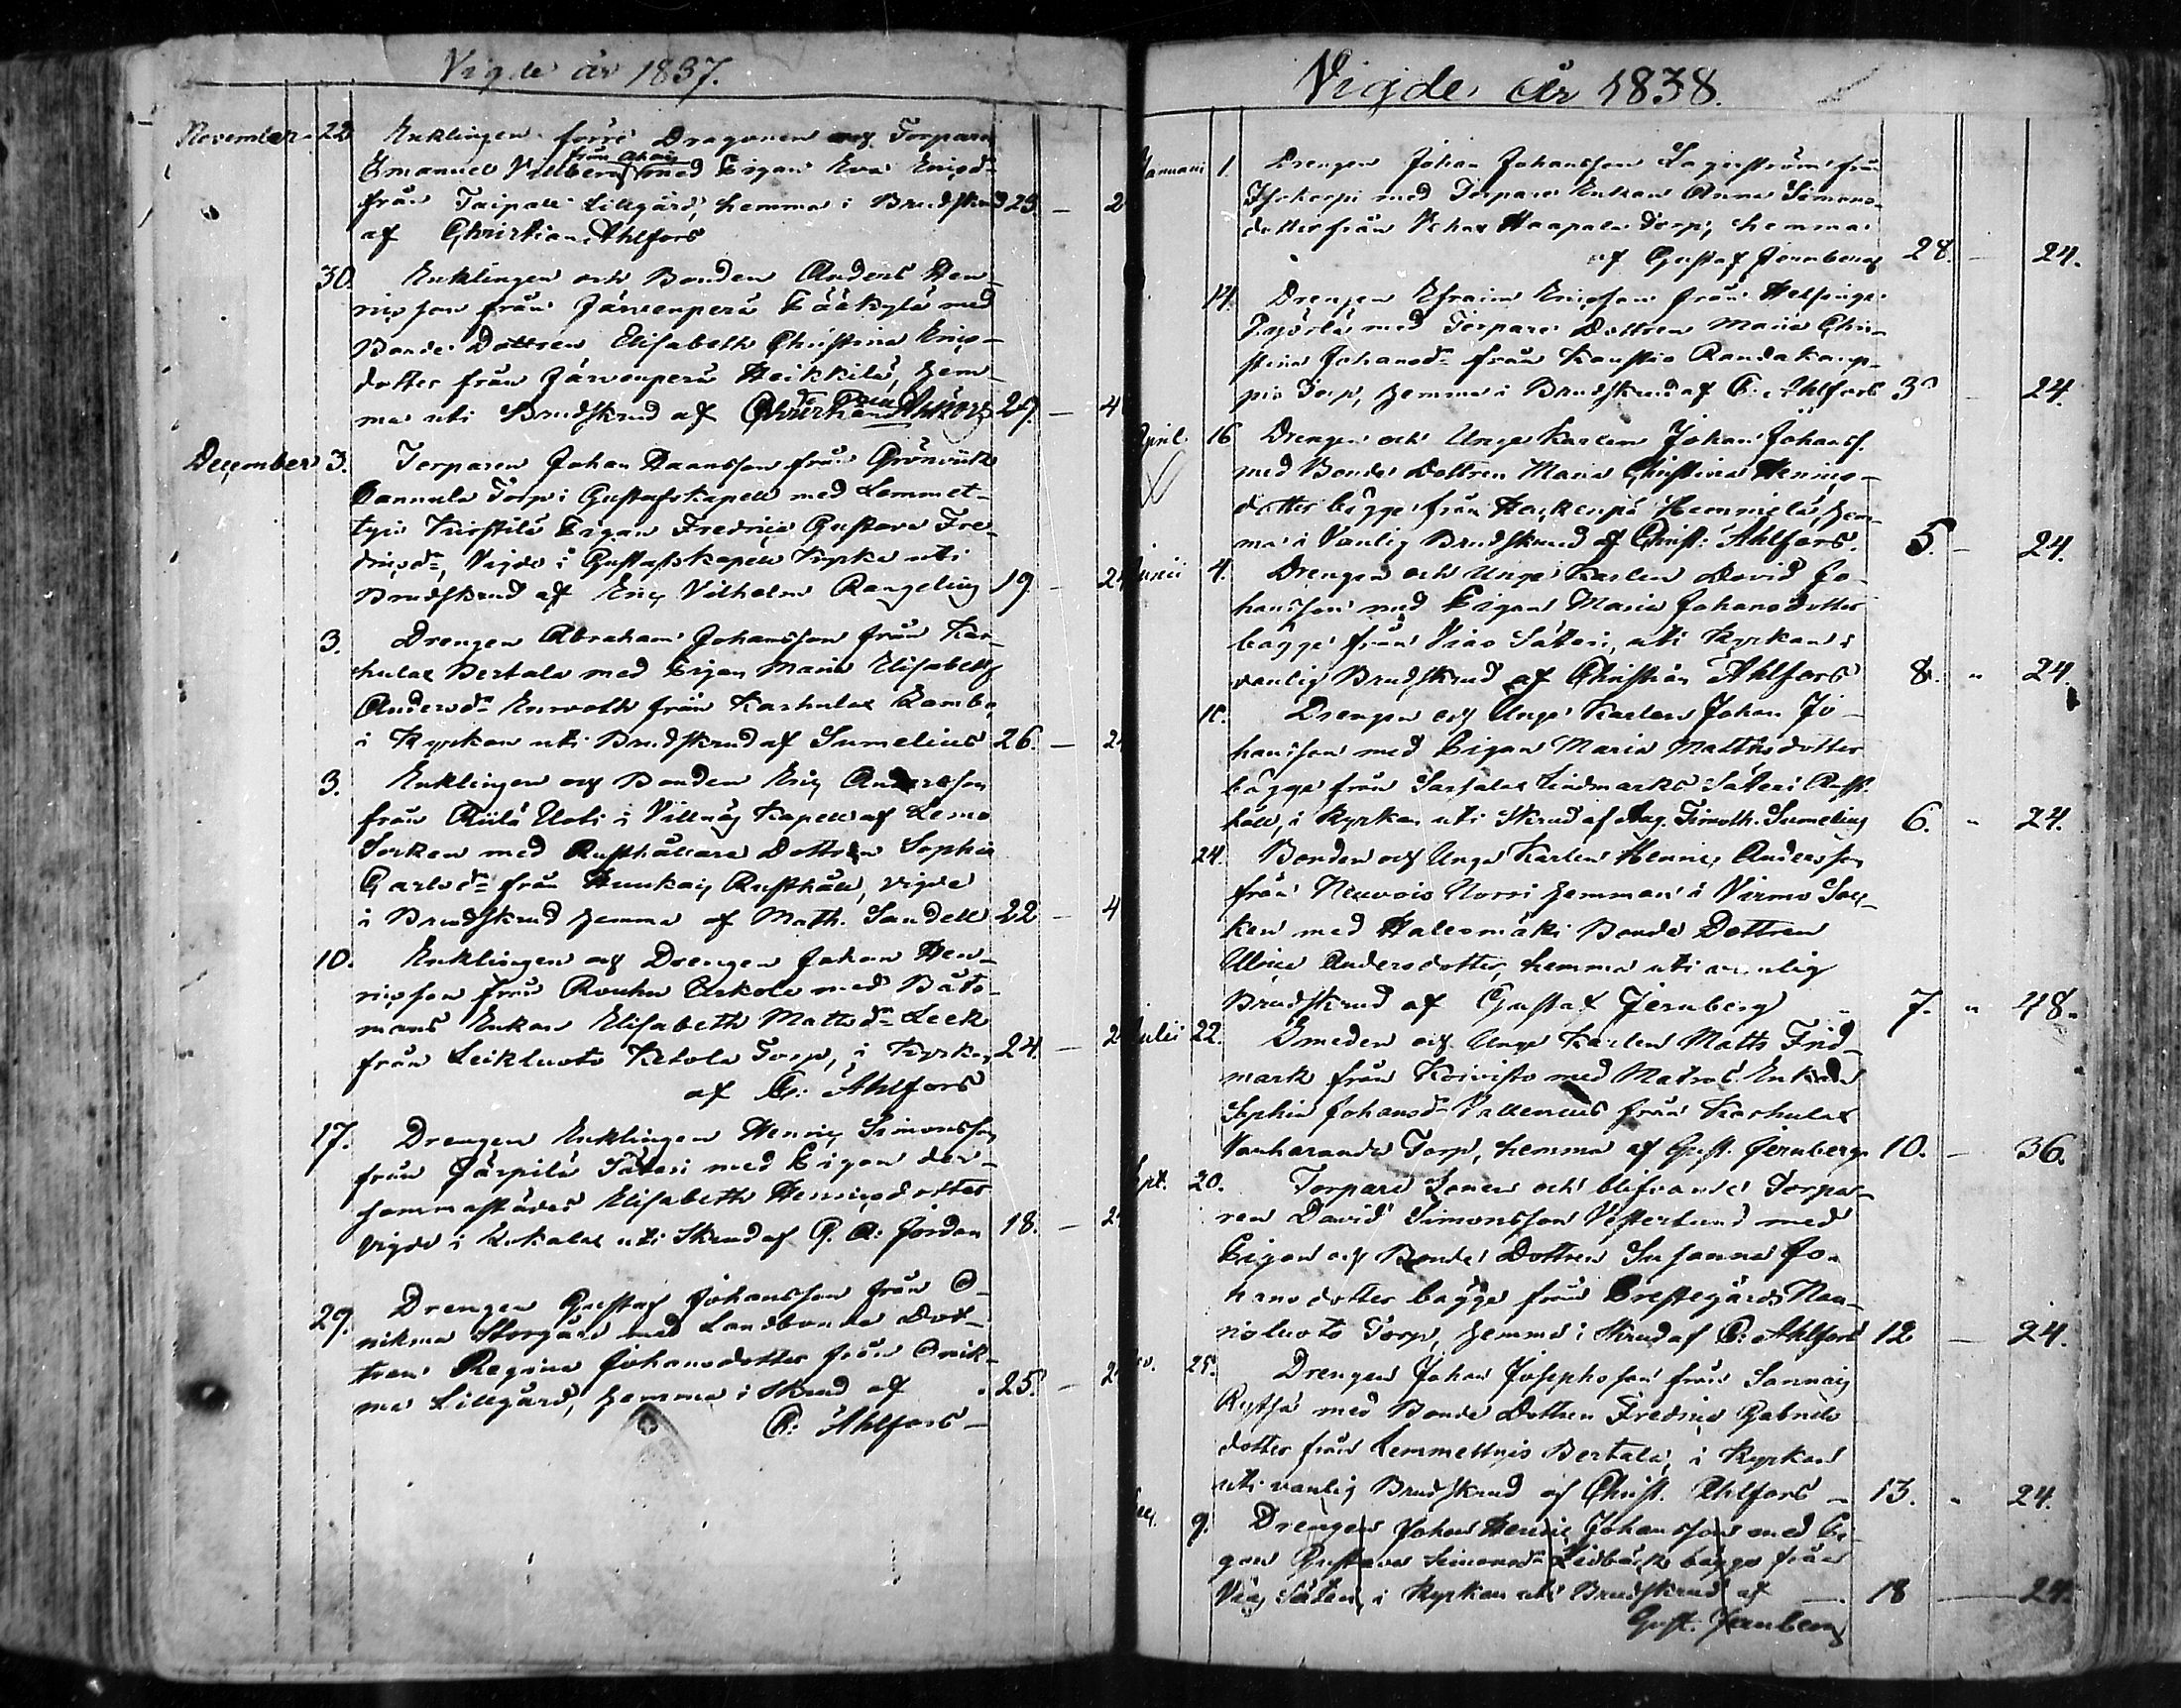 Vigde år 1837.
November 22 Enklingen förre Dragonen och Torparen
från Ahais
Emanuel Villberg med Pigan Eva Ericsdr
från Taipale Lillgård, hemma i Brudskrud 23. — 2
af Christian Ahlfors
30. Enklingen och Bonden Anders Hen-
ricsson från Järvenperä Pääkylä med
Bonde Dottren Elisabeth Christina Erics-
dotter från Järvenperä Heikkilä, hem-
ma uti Brudskrud af Christian Ahlfors 27. — 4
December 3. Torparen Johan Daansson från Grönvik
Pannula Torp i Gustafs Kapell med Lemmet-
tyis Kirstilä Pigan Fredrica Gustava Fre-
dricsdr, Vigde i Gustafs Kapell Kyrka uti
Brudskrud af Eric Vilhelm Rangeling 19. — 24
3. Drengen Abraham Johansson från Kar-
hulax Bertala med Pigan Maria Elisabeth
Andersdr Enroth från Karhulax Lambo,
i Kyrkan uti Brudskrud af Sumelius 26. — 2
3. Enklingen och Bonden Eric Andersson
från Riilä Uoti i Villnäs Kapell af Lemo
Socken med Rusthållare Dottren Sophia
Carlsdr från Hunkais Rusthåll, vigde
i Brudskrud hemma af Math. Sandell 22 — 4
10. Enklingen och Drengen Johan Hen-
ricsson från Rouhu Erkola med Båts-
mans Enkan Elisabeth Mattsdr Leek
från Leikluoto Ketola Torp, i Kyrkan 24. — 2
af C: Ahlfors
17. Drengen Enklingen Henric Simonsson
från Järpilä Säteri med Pigan der-
sammastädes Elisabeth Henricsdotter
vigde i Lokalax uti Skrud af G. A: Jordan 18. — 2
29. Drengen Gustaf Johansson från O-
nikma Storgård med Landbonde Dot-
tren Regina Johansdotter från Onik-
ma Lillgård, hemma i Skrud af 25. — 2
C: Ahlfors —
Vigde År 1838.
Januarii 1. Drengen Johan Johansson Lagerström från
Isokorpi med Torpare Enkan Anna Simons-
dotter från Vehas Haapala Torp, hemma
af Gustaf Jernberg 28. — 24.
14. Drengen Efraim Ericsson från Helsinge
med Torpare Dottren Maria Chri-
stina Johansdr från Kaustio Randakaup-
pis Torp, hemma i Brudskrud af C: Ahlfors 3 — 24.
April. 16 Drengen och Unge Karlen Johan Johanss.
med Bonde Dottren Maria Christina Henrics-
dotter bägge från Hemmilä, hem-
ma i Vanlig Brudskrud af Christ: Ahlfors. 5. — 24.
Junii 4. Drengen och Unge Karlen David Jo-
hansson med Pigan Maria Johansdotter
bägge från Viais Säteri, uti Kyrkan i
vanlig Brudskrud af Christian Ahlfors 8. „ 24.
10. Drengen och Unge Karlen Johan Jo-
hansson med Pigan Maria Mattsdotter
bägge från Sarsalax Lindmarks Säteri Rust-
håll, i Kyrkan uti Skrud af Aug. Timoth. Sumelius 6. „ 24.
24. Bonden och Unge Karlen Henric Andersson
från Neuvois Norri hemman i Virmo Soc-
ken med Haleomäki Bonde Dottren
Ulrica Andersdotter, hemma uti vanlig
Brudskrud af Gustaf Jernberg 7. „ 48.
Julii 22. Smeden och Unge Karlen Matts Frid-
mark från Koivisto med Matros Enkan
Sophia Johansdr Vallenius från Karhulax
Vanharanda Torp, hemma af Gust. Jernberg 10. — 36.
Sept. 20. Torpare Sonen och blifvande Torpa-
ren David Simonsson Vesterlund med
Pigan och Bonde Dottren Susanna Jo-
hansdotter bägge från Prestegårds Nau-
risluoto Torp, hemma i Skrud af C: Ahlfors 12 — 24.
25. Drengen Johan Josephsson från Sannais
Rytsä med Bonde Dottren Fredrica Gabriels
dotter från Lemmettyis Bertala, i Kyrkan
uti vanlig Brudskrud af Christ. Ahlfors — 13. „ 24.
Dec. 9. Drengen Johan Henric Johansson med Pi-
gan Gustava Simonsdr Lidbäck bägge från
Viais Säteri, i Kyrkan uti Brudskrud af — 18 — 24.
Gust. Jernberg